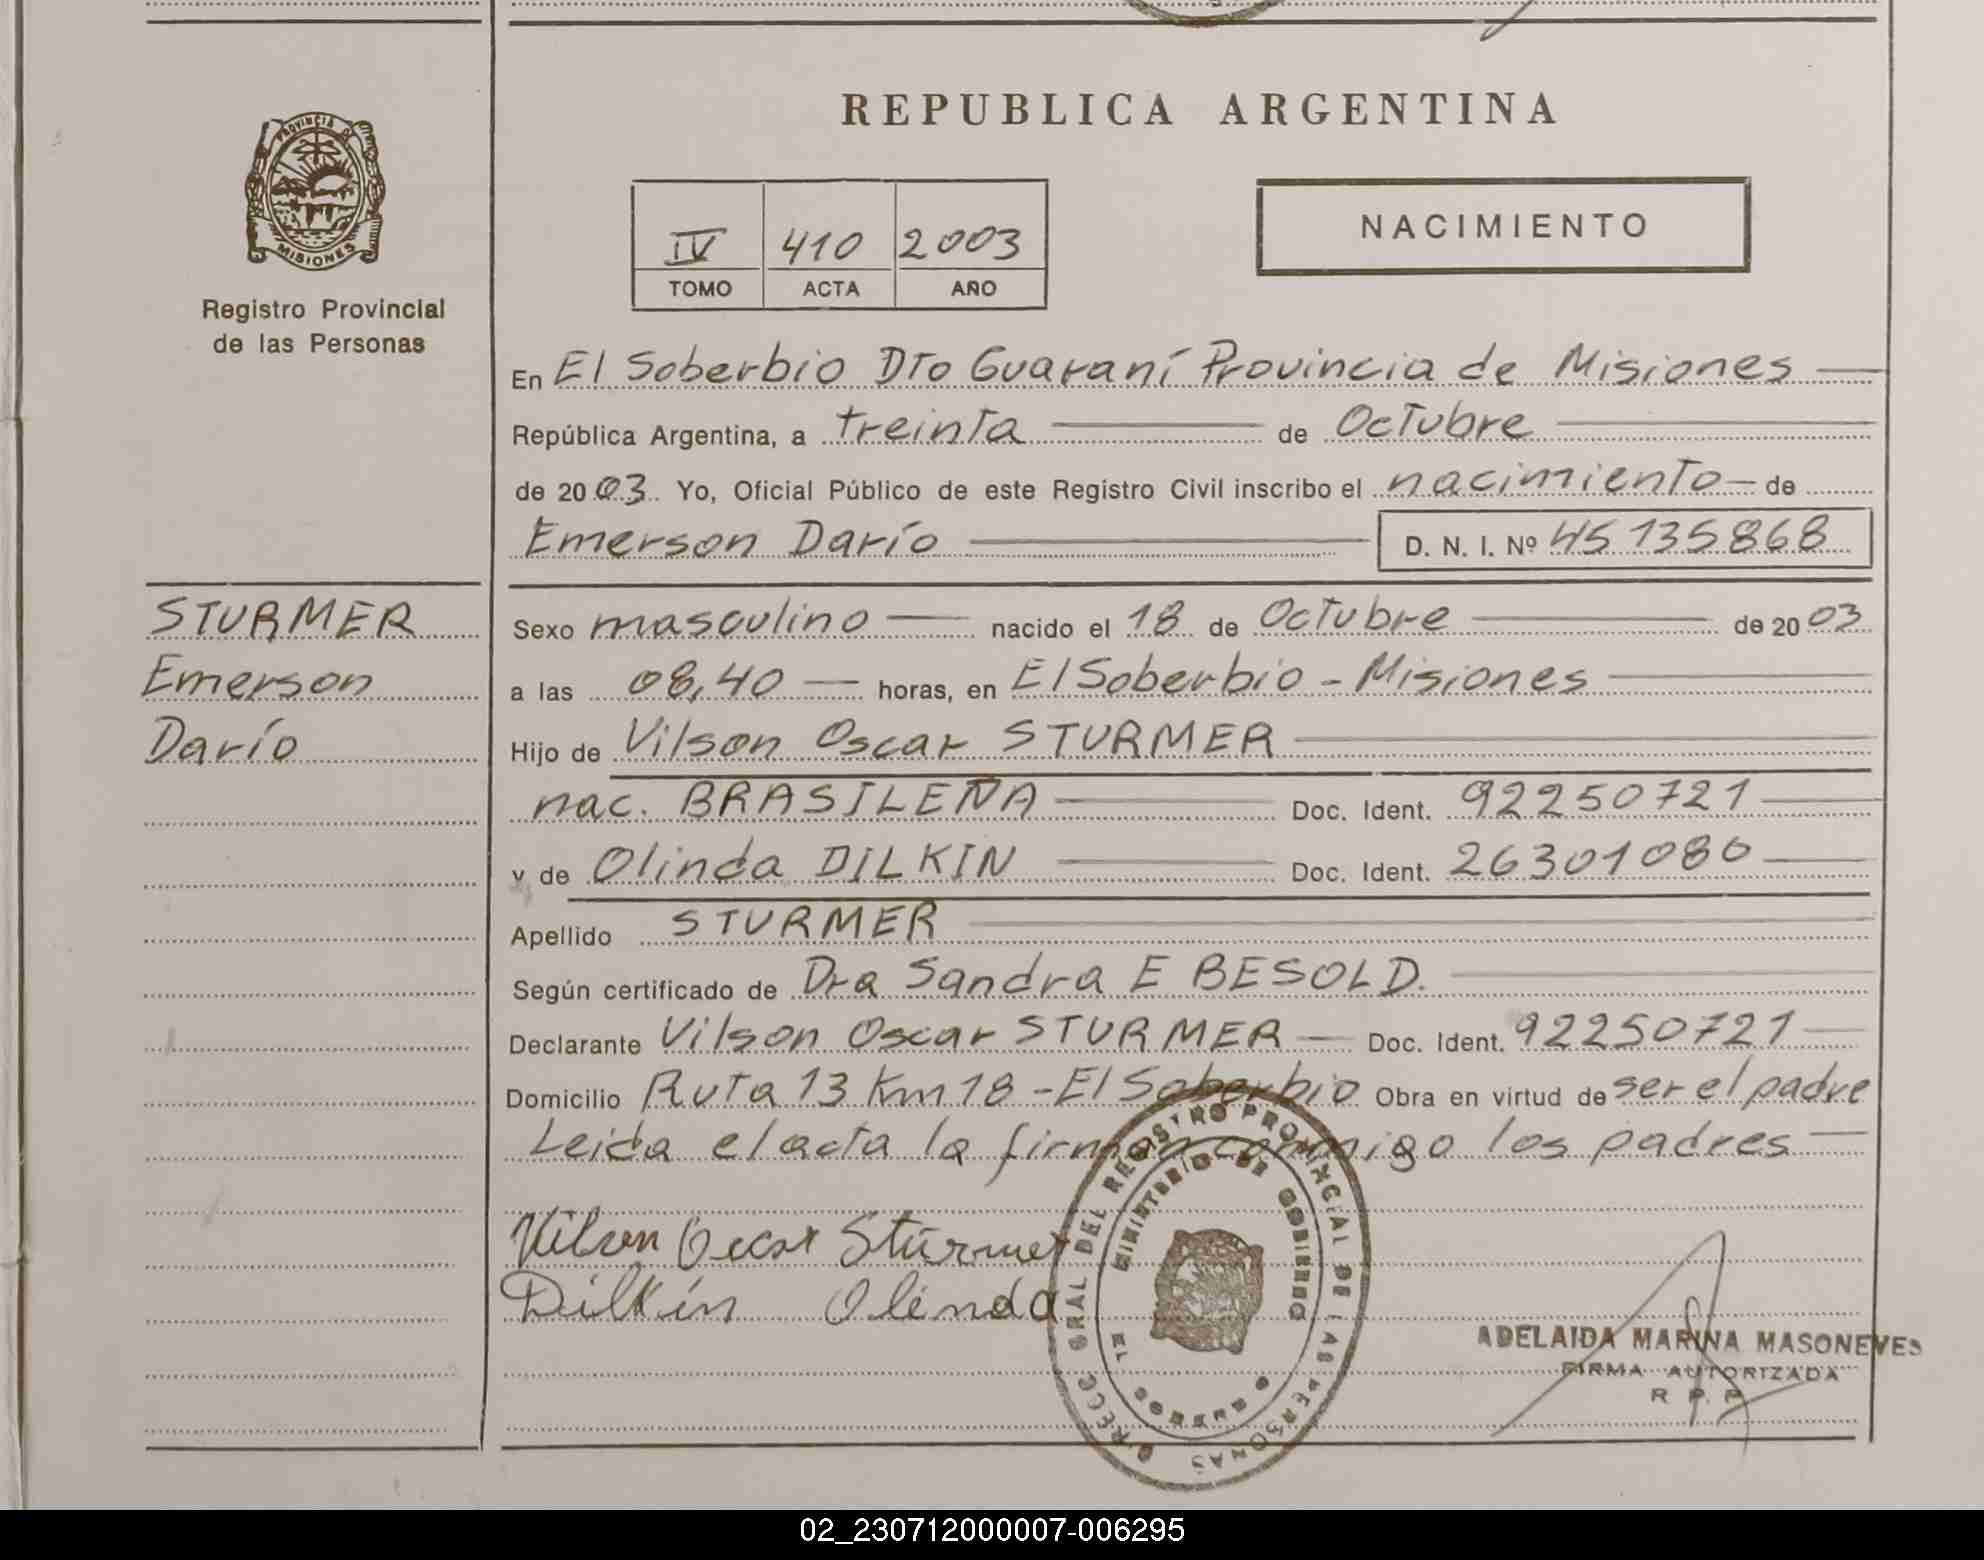 REPUBLICA ARGENTINA
PROVINCIA DE MISIONES
Registro Provincial
de las Personas
IV 410 2003
TOMO ACTA AÑO
NACIMIENTO
En El Soberbio Dto Guaraní Provincia de Misiones
República Argentina, a treinta de Octubre
de 20 03. Yo, Oficial Público de este Registro Civil inscribo el nacimiento de
Emerson Darío D. N. I. Nº 45135868
STURMER
Emerson
Darío
Sexo masculino nacido el 18 de Octubre de 20 03
a las 08,40 horas, en El Soberbio - Misiones
Hijo de Vilson Oscar STURMER
nac. BRASILEÑA Doc. Ident. 92250721
y de Olinda DILKIN Doc. Ident. 26301080
Apellido STURMER
Según certificado de Dra Sandra E BESOLD.
Declarante Vilson Oscar STURMER Doc. Ident. 92250721
Domicilio Ruta 13 Km 18 - El Soberbio Obra en virtud de ser el padre
Leida el acta la firman conmigo los padres
Vilson Oscar Stürmer
Dilkin Olinda
GRAL DEL REGISTRO PROVINCIAL DE LAS PERSONAS
MINISTERIO DE GOBIERNO
EL SOBERBIO
ADELAIDA MARINA MASONEVES
FIRMA AUTORIZADA
R. P. P.
02_230712000007-006295